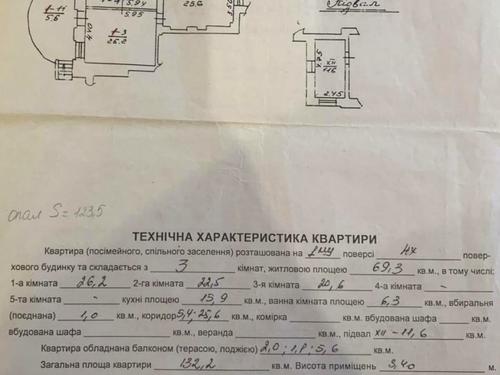 1-11
5,6
5.94
5.95
4.40
1-3
26.2
25.6
Підвал
4.75
XII
11.6
2.45
опал S = 123,5
ТЕХНІЧНА ХАРАКТЕРИСТИКА КВАРТИРИ
Квартира (посімейного, спільного заселення) розташована на 1му поверсі 4х повер-
хового будинку та складається з 3 кімнат, житловою площею 69,3 кв.м., в тому числі:
1-а кімната 26,2 2-га кімната 22,5 3-я кімната 20,6 4-а кімната -
5-та кімната - кухні площею 13,9 кв.м., ванна кімната площею 6,3 кв.м., вбиральня
(поєднана) 1,0 кв.м., коридор 5,4; 25,6 кв.м., комірка кв.м. вбудована шафа
вбудована шафа кв.м., веранда кв.м., підвал XII - 11,6 кв.м.
Квартира обладнана балконом (терасою, лоджією) 2,0; 1,8; 5,6 кв.м.
Загальна площа квартири 132,2 кв.м. Висота приміщень 3,40 м.